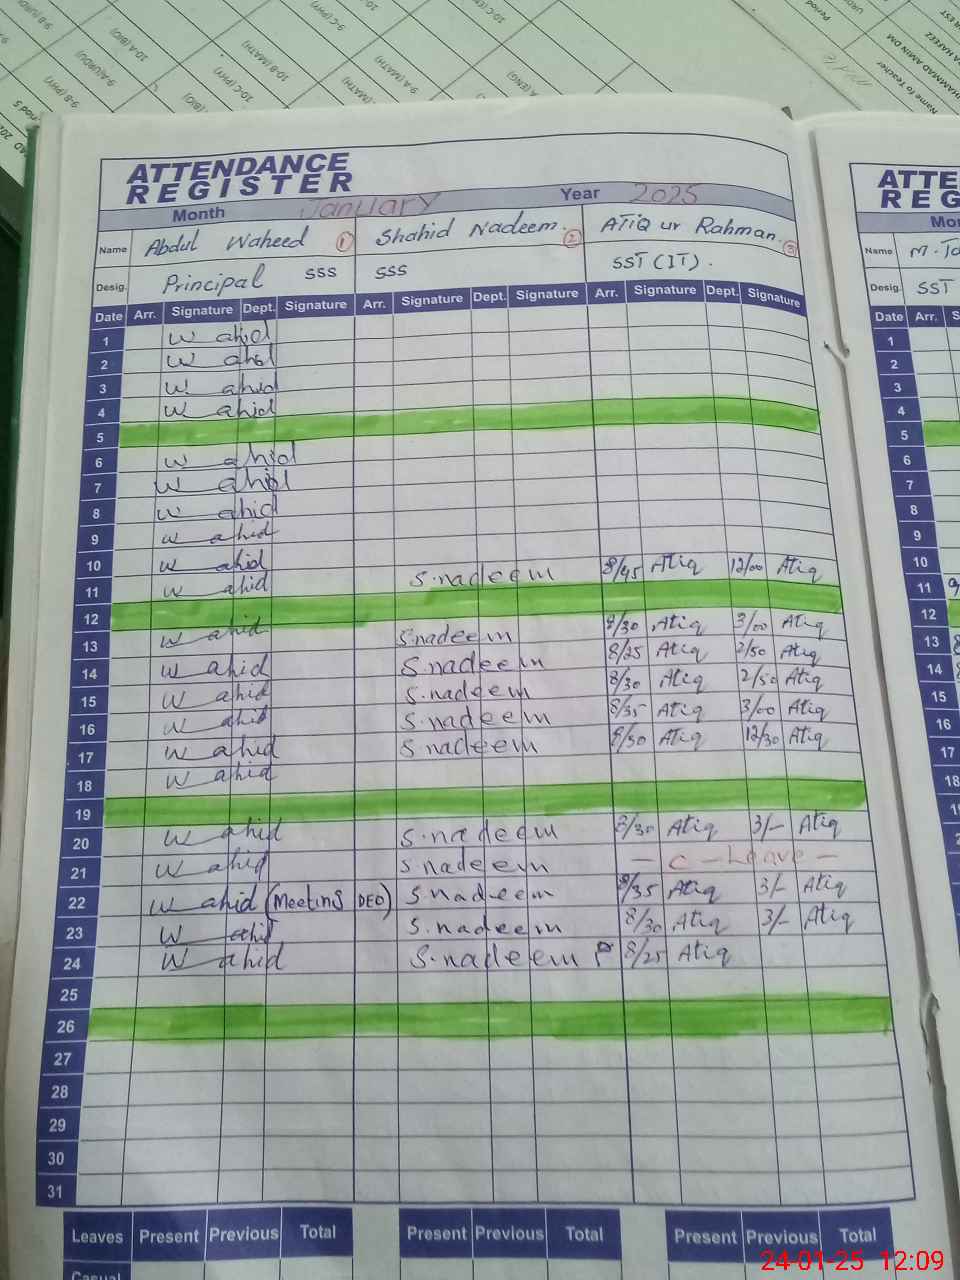 ATTENDANCE
REGISTER
Month January Year 2025
Name Abdul Waheed 1 Shahid Nadeem. 2 ATIQ ur Rahman. 3
Desig. Principal SSS SSS SST (IT).
Date Arr. Signature Dept. Signature Arr. Signature Dept. Signature Arr. Signature Dept. Signature
1 Wahid
2 Wahid
3 Wahid
4 Wahid
5
6 Wahid
7 Wahid
8 Wahid
9 Wahid
10 Wahid
11 Wahid S.nadeem 8/45 Atiq 12/00 Atiq
12
13 Wahid S.nadeem 8/30 Atiq 3/00 Atiq
14 Wahid S.nadeem 8/25 Atiq 2/50 Atiq
15 Wahid S.nadeem 8/30 Atiq 2/50 Atiq
16 Wahid S.nadeem 8/35 Atiq 3/00 Atiq
17 Wahid S.nadeem 8/30 Atiq 12/30 Atiq
18 Wahid
19
20 Wahid S.nadeem 8/30 Atiq 3/- Atiq
21 Wahid S.nadeem - C - Leave -
22 Wahid (Meeting DEO) S.nadeem 8/35 Atiq 3/- Atiq
23 Wahid S.nadeem 8/30 Atiq 3/- Atiq
24 Wahid S.nadeem 8/25 Atiq
25
26
27
28
29
30
31
Leaves Present Previous Total Present Previous Total Present Previous Total
Casual
ATTE
REG
Mon
Name
Desig. SST
Date Arr. S
1
2
3
4
5
6
7
8
9
10
11
12
13
14
15
16
17
18
24-01-25 12:09